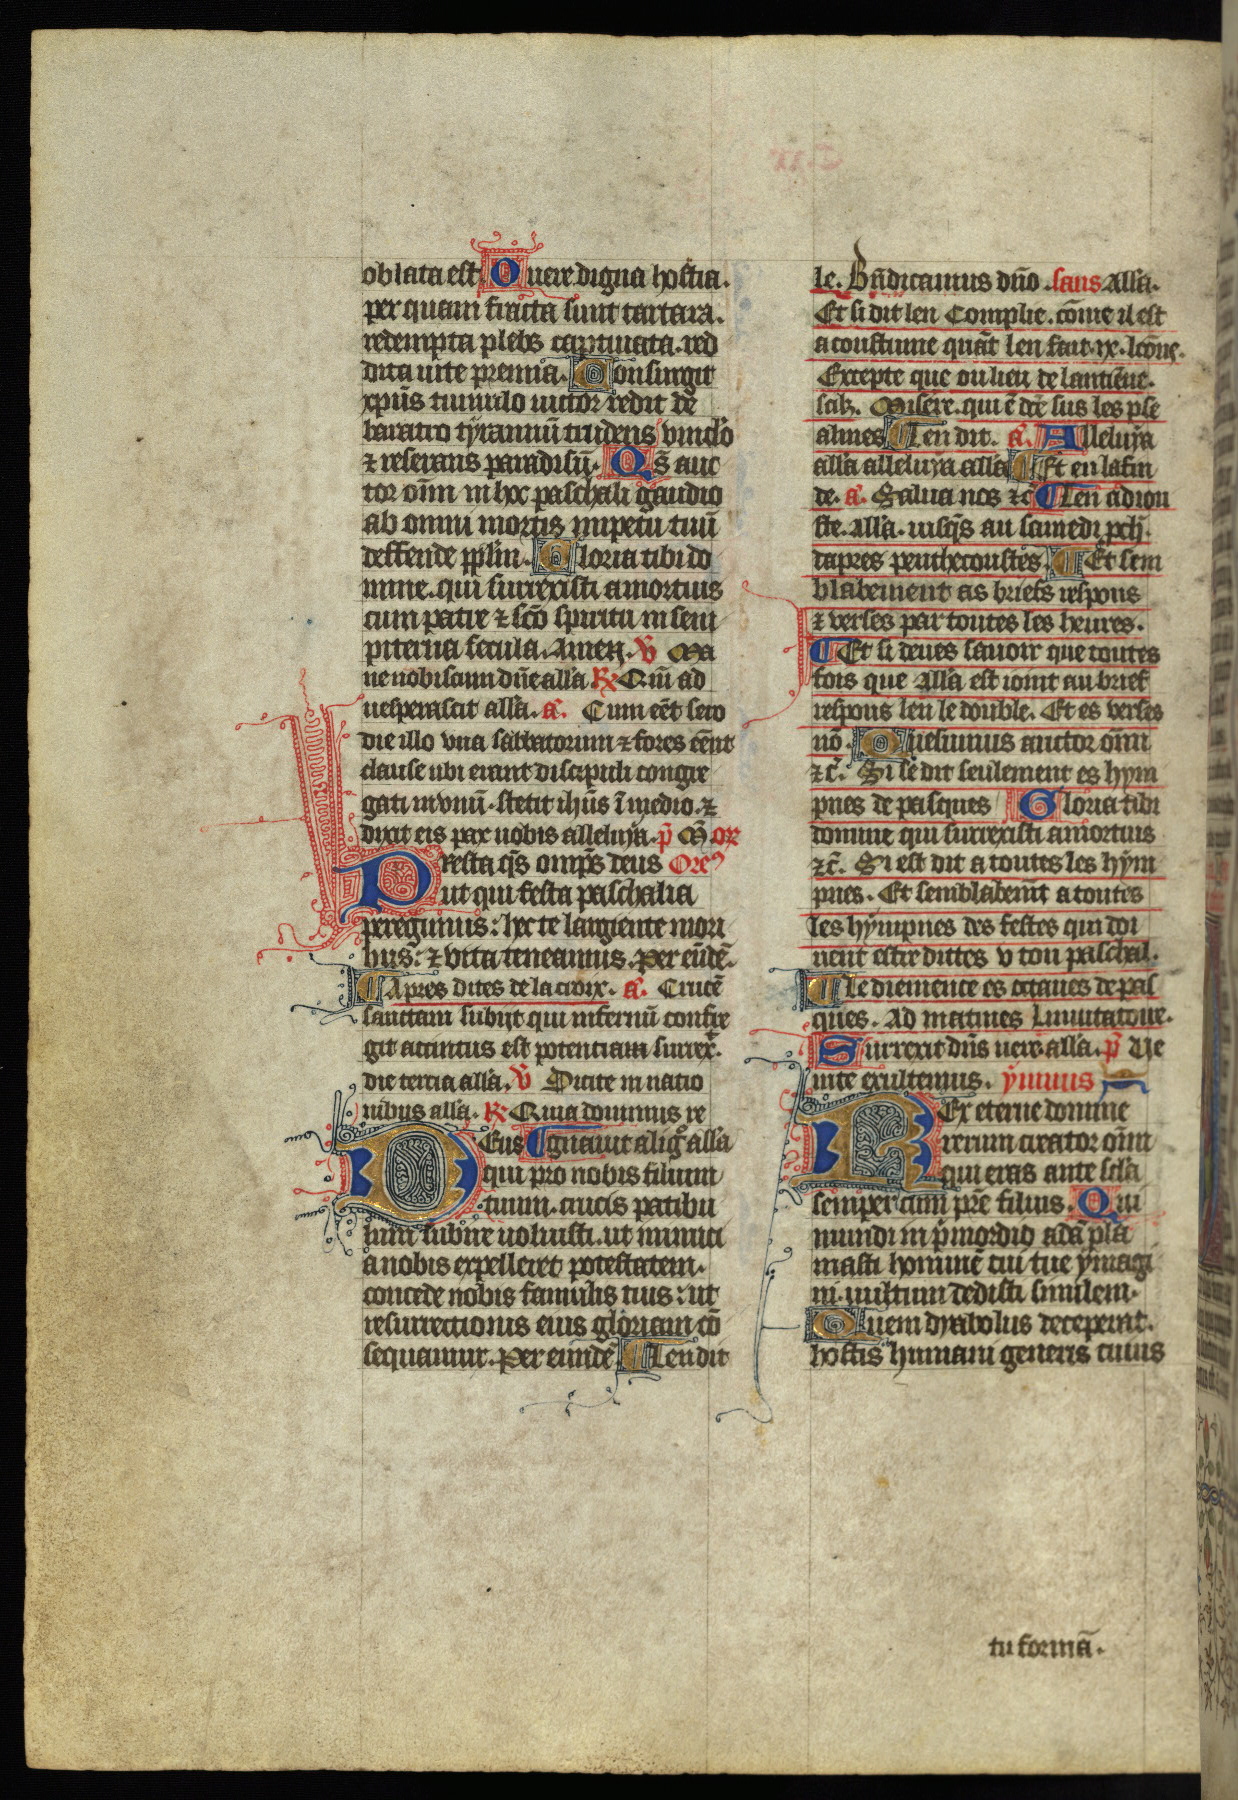 oblata est. O uere digna hostia.
per quam fracta sunt tartara.
redempta plebs captiuata. red
dita uite premia. Consurgit
xp̄us tumulo uictor redit de
baratro tyrannū trudens vinclo
⁊ reserans paradisū. Q̄s auc
tor om̄i in hoc paschali gaudio
ab omni mortis impetu tuū
deffende pplm̄. Gloria tibi do
mine. qui surrexisti a mortuis
cum patre ⁊ sc̄o spiritu in sem
piterna secula. Amen. V̄ Ma
ne nobiscum dn̄e all'a R̄ Qm̄ ad
uesperascit all'a. a'. Cum eēt sero
die illo vna sabbatorum ⁊ fores eēnt
clause ubi erant discipuli congre
gati in vnū. stetit ih̄us ī medio. ⁊
dixit eis pax uobis alleluya. p̄ M̄. or
Presta q̄s omp̄s deus Oreꝰ
ut qui festa paschalia
peregimus: hec te largiente mori
bus: ⁊ vita teneamus. per eūdē.
Apres dites de la croix. a'. Crucē
sanctam subijt qui infernū confre
git accintus est potentiam surrex̄.
die tercia all'a. V̄ Dicite in natio
nibus all'a. R̄ Quia dominus re
Deus gnauit a lig° all'a
qui pro nobis filium
tuum. crucis patibu
lum subire uoluisti. ut inimici
a nobis expelleret potestatem.
concede nobis famulis tuis: ut
resurrectionis eius gloriam cō
sequamur. per eumdē Len dit
le. Bn̄dicamus dn̄o. sans all'a.
Et si dit len Complie. cōme il est
acoustume quāt len fait. ix. lcōns.
Excepte que ou lieu de lantiēne.
scil;. Misere. qui ē dc̄e sus les pse
almes Len dit. a'. Alleluya
all'a alleluya all'a Et en la fin
de. a'. Salua nos ⁊c̄ Len adiou
ste. all'a. iusq̄s au samedi pch̄.
dapres penthecoustes. Et sem
blabement as briefs respons
⁊ verses par toutes les heures.
Et si deues sauoir que toutes
fois que all'a est ioint au brief
respons len le double. Et es verses
nō. Quesumus auctor om̄i
⁊c̄. Si se dit seulement es hym
pnes de pasques Gloria tibi
domine qui surrexisti a mortuis
⁊c̄. Si est dit a toutes les hym
pnes. Et semblabem̄t a toutes
les hympnes des festes qui doi
uent estre dittes v ton paschal.
Le diemence es octaues de pas
ques. Ad matines Inuitatoire.
Surrexit dn̄s uere. all'a. p̄ Ve
nite exultemus. ymnus
Rex eterne domine
rerum creator om̄i
qui eras ante sc̄l'a
semper cum pr̄e filius. Qui
mundi in p̄mordio adā pla
masti hominē cui tue ymagi
ni. uultum dedisti similem.
Quem dyabolus deceperat.
hostis humani generis cuius
tu formā.